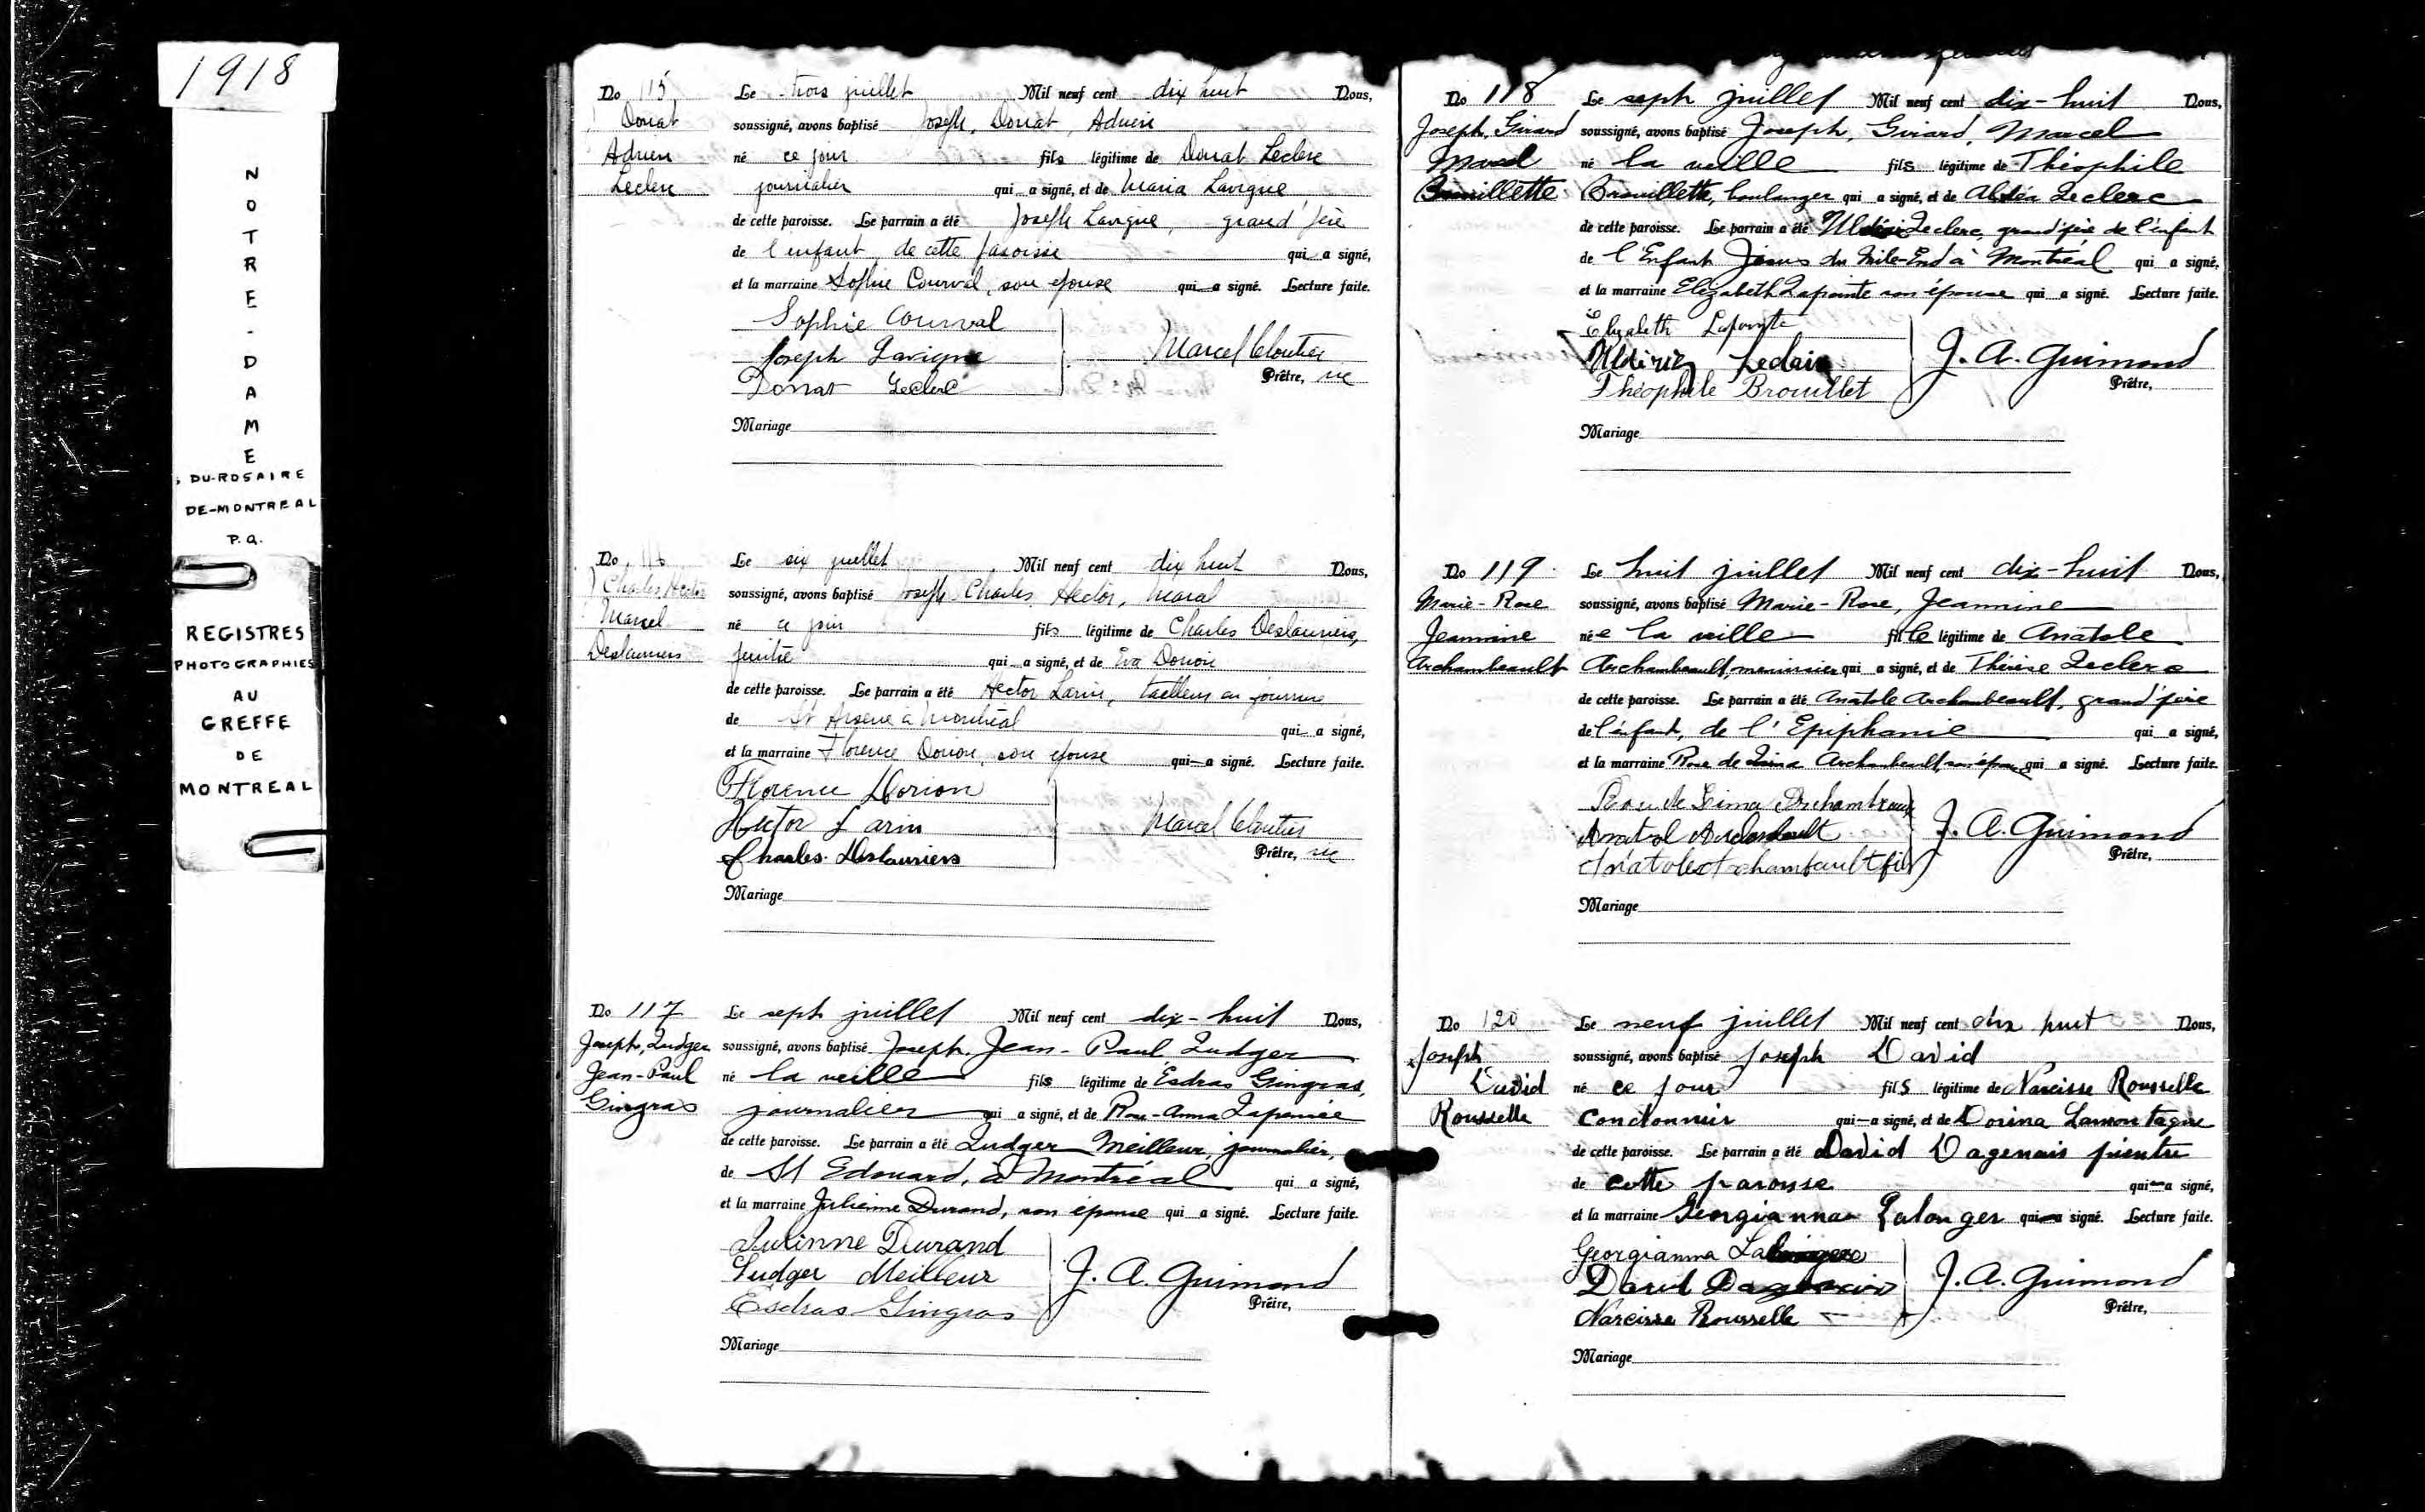 1918
NOTRE-DAME
DU-ROSAIRE
DE-MONTREAL
P.Q.
REGISTRES
PHOTOGRAPHIES
AU
GREFFE
DE
MONTREAL
No 115 Le trois juillet Mil neuf cent dix huit Nous,
Donat soussigné, avons baptisé Joseph, Donat, Adrien
Adrien né ce jour fils légitime de Donat Leclerc
Leclerc journalier qui a signé, et de Maria Lavigne
de cette paroisse. Le parrain a été Joseph Lavigne, grand père
de l'enfant, de cette paroisse qui a signé,
et la marraine Sophie Courval, son épouse qui a signé. Lecture faite.
Sophie Courval
Joseph Lavigne Marcel Cloutier
Donat Leclerc Prêtre, vic
Mariage
No 116 Le six juillet Mil neuf cent dix huit Nous,
Charles, Hector soussigné, avons baptisé Joseph Charles, Hector, Marcel
Marcel né ce jour fils légitime de Charles Deslauriers,
Deslauriers qui a signé, et de Eva Dorion
de cette paroisse. Le parrain a été Hector Larin, tailleur en
de St Arsène à Montréal qui a signé,
et la marraine Florence Dorion, son épouse qui a signé. Lecture faite.
Florence Dorion
Hector Larin Marcel Cloutier
Charles Deslauriers Prêtre, vic
Mariage
No 117 Le sept juillet Mil neuf cent dix-huit Nous,
Joseph, Ludger soussigné, avons baptisé Joseph, Jean-Paul, Ludger
Jean-Paul né la veille fils légitime de Esdras Gingras,
Gingras journalier qui a signé, et de Rose-Anna
de cette paroisse. Le parrain a été Ludger Meilleur, journalier,
de St Edouard, à Montréal qui a signé,
et la marraine Julienne Durand, son épouse qui a signé. Lecture faite.
Julinne Durand
Ludger Meilleur J. A. Guimond
Esdras Gingras Prêtre,
Mariage
No 118 Le sept juillet Mil neuf cent dix-huit Nous,
Joseph, Girard soussigné, avons baptisé Joseph, Girard, Marcel
Marcel né la veille fils légitime de Théophile
Brouillette Brouillette, boulanger qui a signé, et de Leclerc
de cette paroisse. Le parrain a été Leclerc, grand'père de l'enfant
de l'Enfant Jésus du Mile-End à Montréal qui a signé,
et la marraine Elizabeth Lapointe son épouse qui a signé. Lecture faite.
Elizabeth Lapointe
J. A. Guimond
Théophile Brouillet Prêtre,
Mariage
No 119 Le huit juillet Mil neuf cent dix-huit Nous,
Marie-Rose soussigné, avons baptisé Marie-Rose, Jeannine
Jeannine née la veille fille légitime de Anatole
Archambeault Archambeault, menuisier qui a signé, et de Thérèse Leclerc
de cette paroisse. Le parrain a été Anatole Archambeault, grand'père
de l'enfant, de l'Epiphanie qui a signé,
et la marraine Rose de Lima Archambeault, son épouse qui a signé. Lecture faite.
Rose de Lima Archambeault
Anatol J. A. Guimond
Anatole Archambault fils Prêtre,
Mariage
No 120 Le neuf juillet Mil neuf cent dix huit Nous,
Joseph soussigné, avons baptisé Joseph David
David né ce jour fils légitime de Narcisse Rousselle
Rousselle qui a signé, et de Dorina Lamontagne
de cette paroisse. Le parrain a été David Dagenais
de cette paroisse qui a signé,
et la marraine Georgianna Lalonger qui a signé. Lecture faite.
Georgianna
David J. A. Guimond
Narcisse Rousselle Prêtre,
Mariage